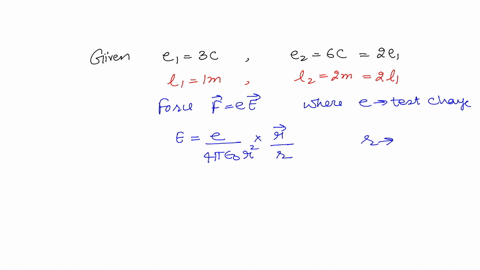 Given e₁ = 3C , e₂ = 6C = 2e₁
l₁ = 1m , l₂ = 2m = 2l₁
Force F⃗ = eE⃗ where e → test charge
E = e/4πε₀r² × r⃗/r r →